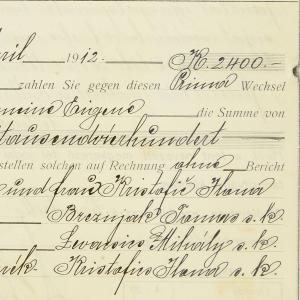 ril 1912 K. 2400.-
zahlen Sie gegen diesen Prima Wechsel
meine Eigene die Summe von
tausendvierhundert
stellen solchen auf Rechnung ohne Bericht
und frau Kristofič Ilona
Breznjak Tomas s. k.
Levacics Mihály s. k.
Kristofics Ilona s. k.